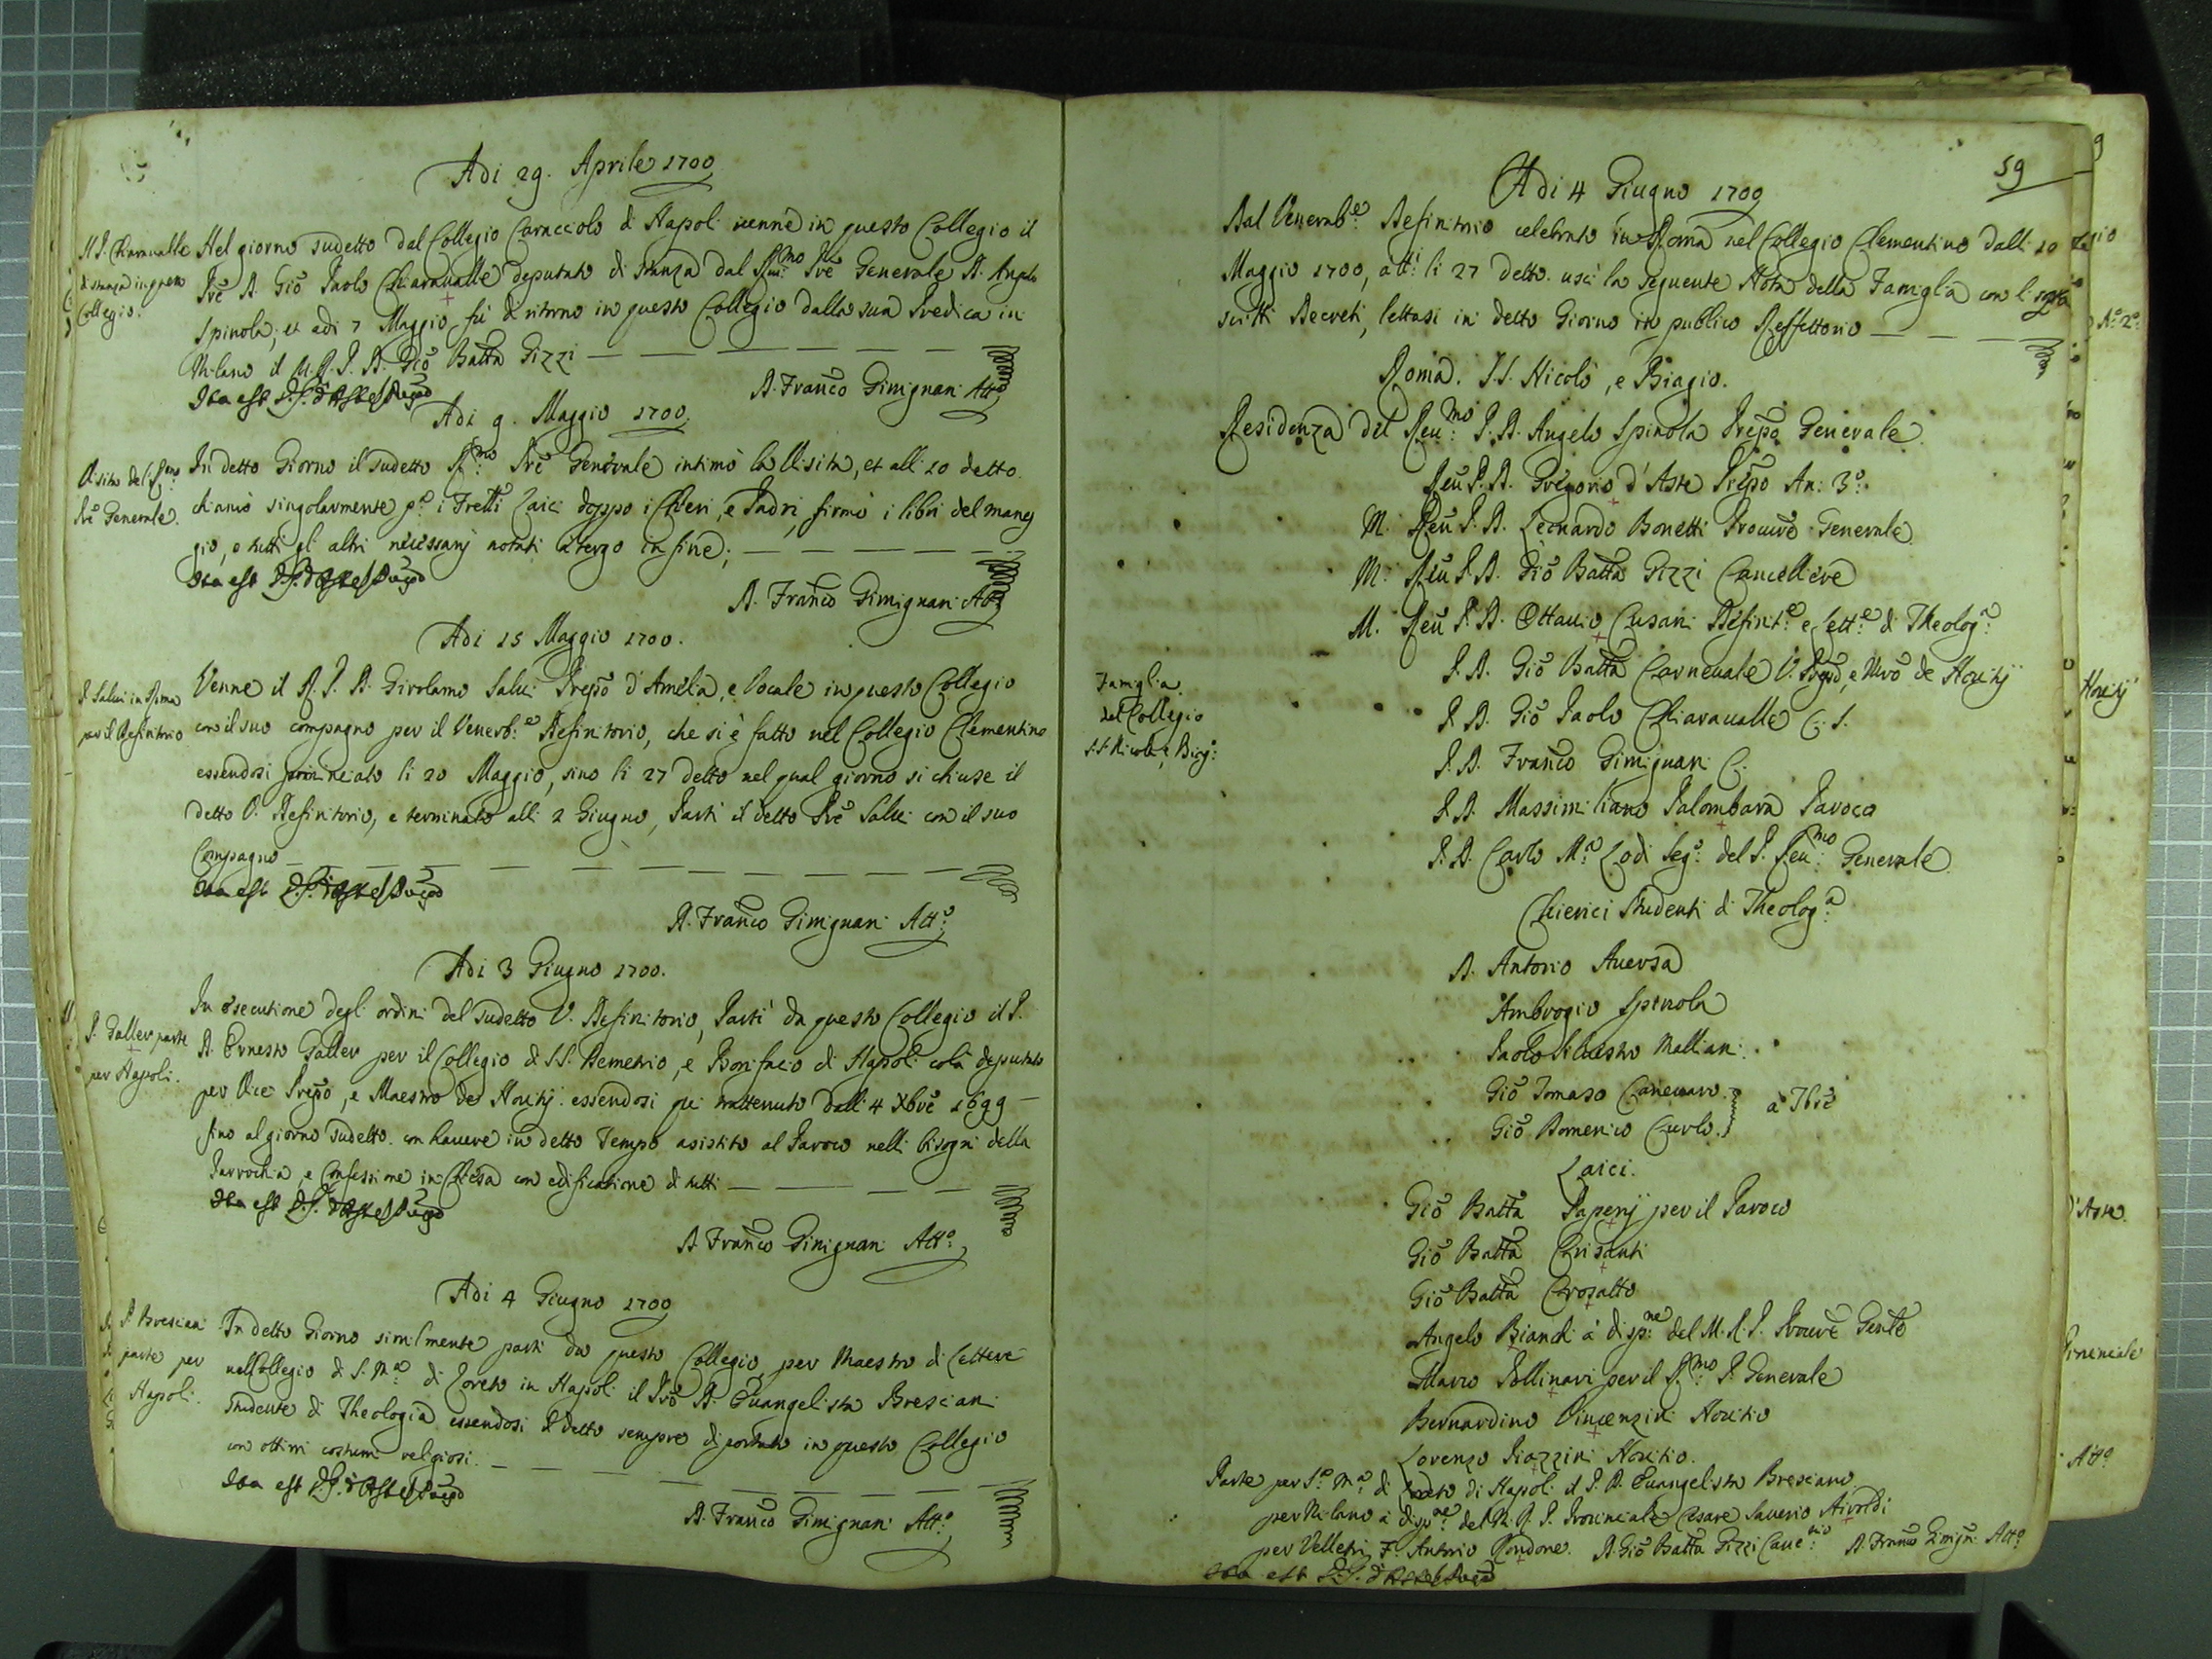 Adi 29. Aprile 1700
P. Chiaravalle
di stanza in questo
Collegio.
Nel giorno sudetto dal Collegio Caracciolo di Napoli venne in questo Collegio il
Prē D. Giō Paolo Chiaravalle deputato di stanza dal Rm̄o Prē Generale D. Angelo
Spinola; et adi 7 Maggio fù di ritorno in questo Collegio dalla sua Predica in
Milano il M.R.P. D. Giō Batta Pizzi
Ita est D.G. d'Aste Prep̄o
D. Franc̄o Gimignani Att.º
Adi 9. Maggio 1700
Visita del R.mo
Prē Generale.
In detto Giorno il sudetto R.mo Prē Generale intimò la Visita, et alli 10 detto
chiamò singolarmente p.ª i Fretti Laici doppo i Chieri, e Padri, firmò i libri del maneg
gio, e tutti gl altri necessarij notati à tergo in fine;
Ita est D.G. d'Aste Prep̄o
D. Franc̄o Gimignani Att.º
Adi 15 Maggio 1700.
P. Salvi in Roma
per il Definitorio
Venne il R. P. D. Girolamo Salvi Prep̄o d'Amelia, e Vocale in questo Collegio
con il suo compagno per il Venerab.e Definitorio, che si è fatto nel Collegio Clementino
essendosi principiato li 20 Maggio, sino li 27 detto nel qual giorno si chiuse il
detto V. Definitorio, e terminato alli 2 Giugno, Partì il detto Prē Salvi con il suo
Compagno
Ita est D.G. d'Aste Prep̄o
D. Franc̄o Gimignani Att.º
Adi 3 Giugno 1700.
P. Galler parte
per Napoli.
In esecutione degli ordini del sudetto V. Definitorio, Partì da questo Collegio il P.
D. Ernesto Galler per il Collegio di SS. Demetrio, e Bonifacio di Napoli colà deputato
per Vice Prep̄o, e Maestro de Novitij. essendosi qui trattenuto dalli 4 Xbrē 1699
fino al giorno sudetto. con havere in detto Tempo asistito al Paroco nelli bisogni della
Parrochia, e Confessione in Chiesa con edificatione di tutti
Ita est D.G. d'Aste Prep̄o
D. Franc̄o Gimignani Att.º
Adi 4 Giugno 1700
P. Bresciani
parte per
Napoli.
In detto Giorno similmente partì da questo Collegio per Maestro di Lettere
nel Collegio di S. M.ª di Loreto in Napoli il Prē D. Evangelista Bresciani
studente di Theologia essendosi il detto sempre diportato in questo Collegio
con ottimi costumi religiosi.
Ita est D.G. d'Aste Prep̄o
D. Franc̄o Gimignani Att.º
59
Adi 4 Giugno 1700
Dal Venerab.e Definitorio celebrato in Roma nel Collegio Clementino dalli 20
Maggio 1700, alli 27 detto. uscì la seguente Nota della Famiglia con li sotto
scritti Decreti, lettasi in detto Giorno in publico Reffettorio
Roma. SS. Nicolò, e Biagio.
Residenza del Reu.mo P. D. Angelo Spinola Prep̄o Generale.
Reu P. D. Gregorio d'Aste Prep̄o An: 3.º
M. Reu P. D. Leonardo Bonetti Procurē Generale
M. Reu P. D. Giō Batta Pizzi Cancelliere
M. Reu P. D. Ottavio Cusani Definit.e e Lett.e di Theolog.ª
Famiglia
del Collegio
SS. Nicolò, e Biag.º
P. D. Giō Batta Carnevale V. Prep̄o, e Mrō de Novitij
P. D. Giō Paolo Chiaravalle C. S.
P. D. Franc̄o Gimignani C.
P. D. Massimiliano Palombara Paroco
P. D. Carlo M.ª Lodi Seg.º del P. Reu.mo Generale
Chierici studenti di Theolog.ª
D. Antonio Aversa
Ambrogio Spinola
Paolo Silvestro Malliani
Giō Tomaso Canevaro
Giō Domenico Curlo
Laici.
Giō Batta Paperij per il Paroco
Giō Batta Crisanti
Giō Batta Crosatto
Angelo Bianchi à disp.ne del M. R. P. Procurē Gen̄le
Marco Pollinari per il R.mo P. Generale
Bernardino Vincenzini Novitio
Lorenzo Piazzini Novitio.
Parte per S.ª M.ª di Loreto di Napoli il P. D. Evangelista Bresciano
per Milano à disp.ne del M. R. P. Provinciale Cesare Saverio Airoldi
per Velletri F. Antonio Rondone. D. Giō Batta Pizzi Canc.rio D. Franc̄o Gimign. Att.º
Ita est D.G. d'Aste Prep̄o